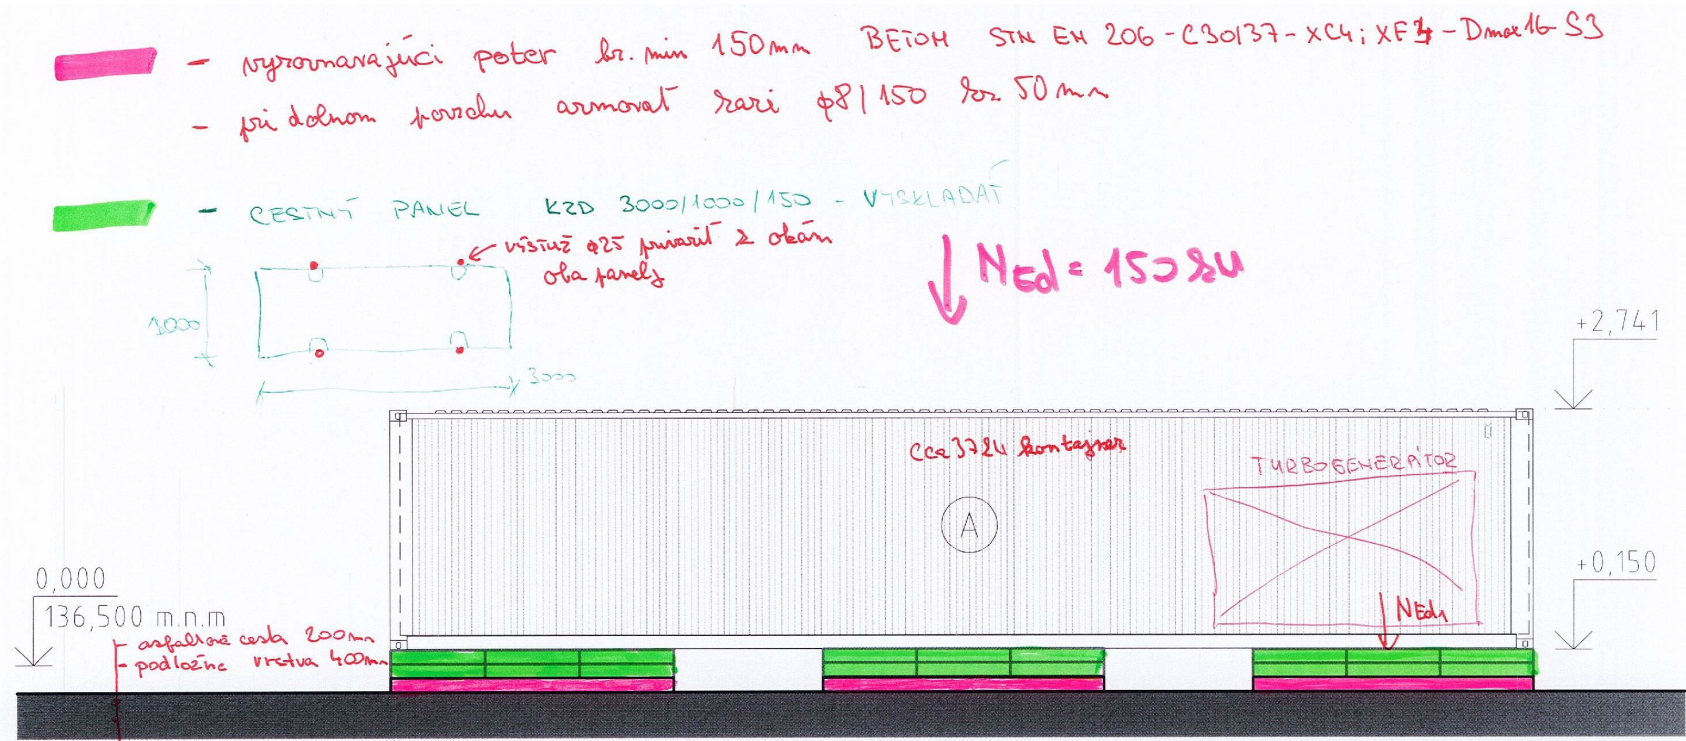 - vyrovnavajúci poter hr. min 150mm BETON STN EN 206-C30/37-XC4; XF3-Dmax16-S3
- pri dolnom povrchu armovat kari φ8/150 50mm
- CESTNÝ PANEL KZD 3000/1000/150 - VYSKLADAŤ
VÝSTUŽ φ25 privariť z okám
oba panely
1000
3000
NEd = 150kN
+2,741
cca 372kN kontajner
TURBOGENERÁTOR
A
NEd1
+0,150
0,000
136,500 m.n.m
- asfaltová cesta 200mm
- podložné vrstva 400mm